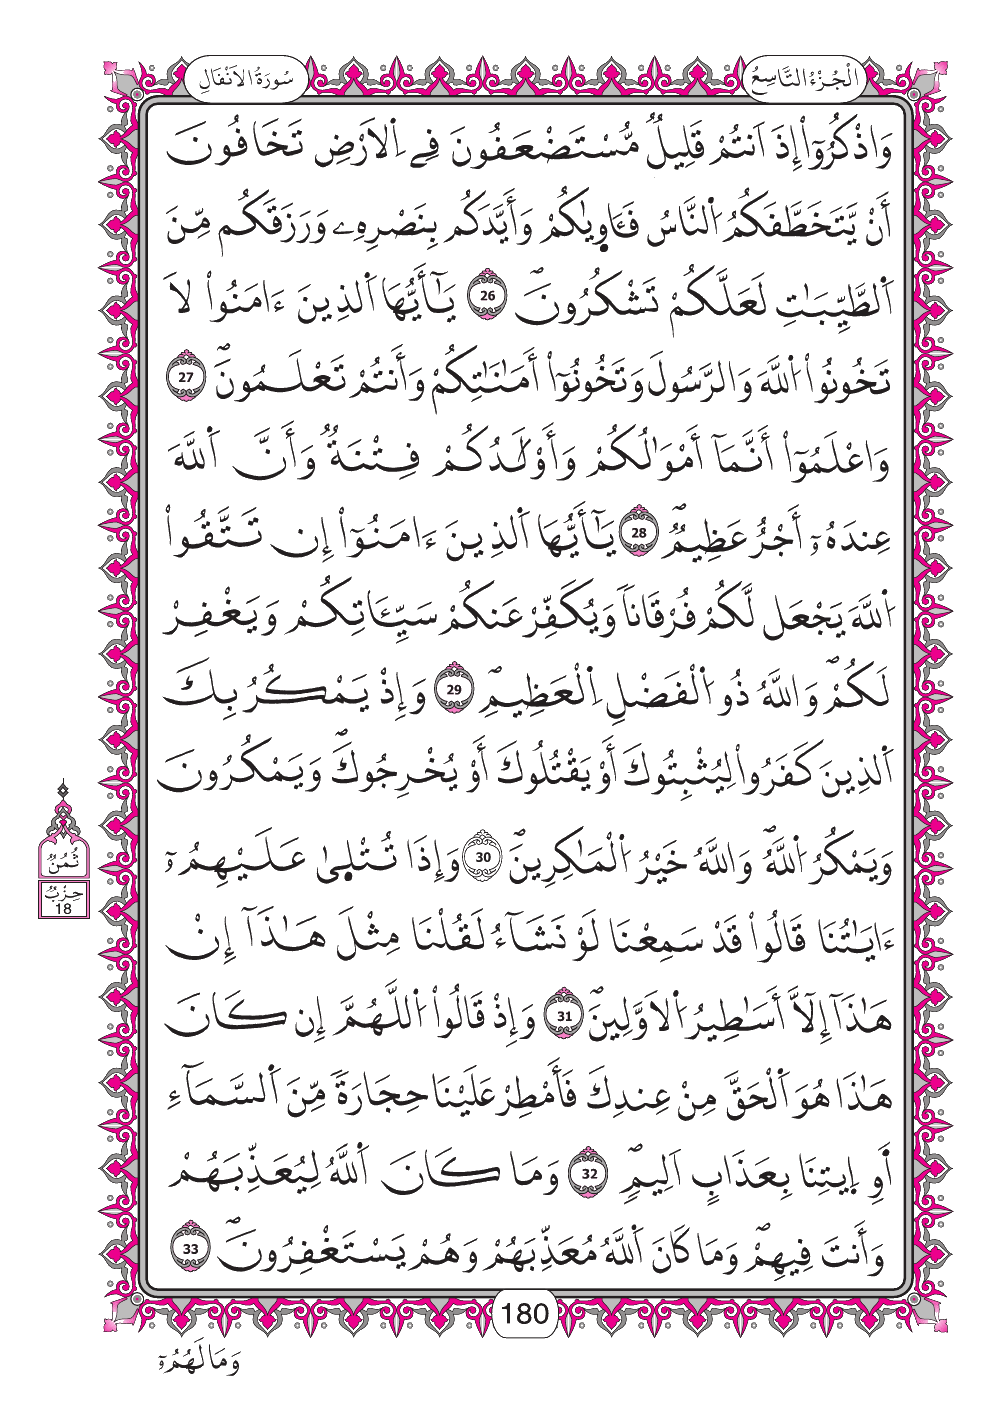 الْجُزْءُ التَّاسِعُ
سُورَةُ الاَنْفَالِ
وَاذْكُرُوٓاْ إِذَ اَنتُمْ قَلِيلٞ مُّسْتَضْعَفُونَ فِے اِ۬لَارْضِ تَخَافُونَ
أَنْ يَّتَخَطَّفَكُمُ اُ۬لنَّاسُ فَـَٔاو۪يٰكُمْ وَأَيَّدَكُم بِنَصْرِهِۦ وَرَزَقَكُم مِّنَ
اَ۬لطَّيِّبَٰتِ لَعَلَّكُمْ تَشْكُرُونَۖ 26 يَٰٓأَيُّهَا اَ۬لذِينَ ءَامَنُواْ لَا
تَخُونُواْ اُ۬للَّهَ وَالرَّسُولَ وَتَخُونُوٓاْ أَمَٰنَٰتِكُمْ وَأَنتُمْ تَعْلَمُونَۖ 27
وَاعْلَمُوٓاْ أَنَّمَآ أَمْوَٰلُكُمْ وَأَوْلَٰدُكُمْ فِتْنَةٞ وَأَنَّ اَ۬للَّهَ
عِندَهُۥٓ أَجْرٌ عَظِيمٞۖ 28 يَٰٓأَيُّهَا اَ۬لذِينَ ءَامَنُوٓاْ إِن تَتَّقُواْ
اُ۬للَّهَ يَجْعَل لَّكُمْ فُرْقَاناٗ وَيُكَفِّرْ عَنكُمْ سَيِّـَٔاتِكُمْ وَيَغْفِرْ
لَكُمْۖ وَاللَّهُ ذُو اُ۬لْفَضْلِ اِ۬لْعَظِيمِۖ 29 وَإِذْ يَمْكُرُ بِكَ
اَ۬لذِينَ كَفَرُواْ لِيُثْبِتُوكَ أَوْ يَقْتُلُوكَ أَوْ يُخْرِجُوكَۖ وَيَمْكُرُونَ
وَيَمْكُرُ اُ۬للَّهُۖ وَاللَّهُ خَيْرُ اُ۬لْمَٰكِرِينَۖ 30 وَإِذَا تُتْل۪يٰ عَلَيْهِمُۥٓ
ءَايَٰتُنَا قَالُواْ قَدْ سَمِعْنَا لَوْ نَشَآءُ لَقُلْنَا مِثْلَ هَٰذَآ إِنْ
هَٰذَآ إِلَّآ أَسَٰطِيرُ اُ۬لَاوَّلِينَۖ 31 وَإِذْ قَالُواْ اُ۬للَّهُمَّ إِن كَانَ
هَٰذَا هُوَ اَ۬لْحَقَّ مِنْ عِندِكَ فَأَمْطِرْ عَلَيْنَا حِجَارَةٗ مِّنَ اَ۬لسَّمَآءِ
اَوِ اِيتِنَا بِعَذَابٍ اَلِيمٖۖ 32 وَمَا كَانَ اَ۬للَّهُ لِيُعَذِّبَهُمْ
وَأَنتَ فِيهِمْۖ وَمَا كَانَ اَ۬للَّهُ مُعَذِّبَهُمْ وَهُمْ يَسْتَغْفِرُونَۖ 33
ثُمُنٌ
حِزْبٌ
18
180
وَمَا لَهُمُۥٓ